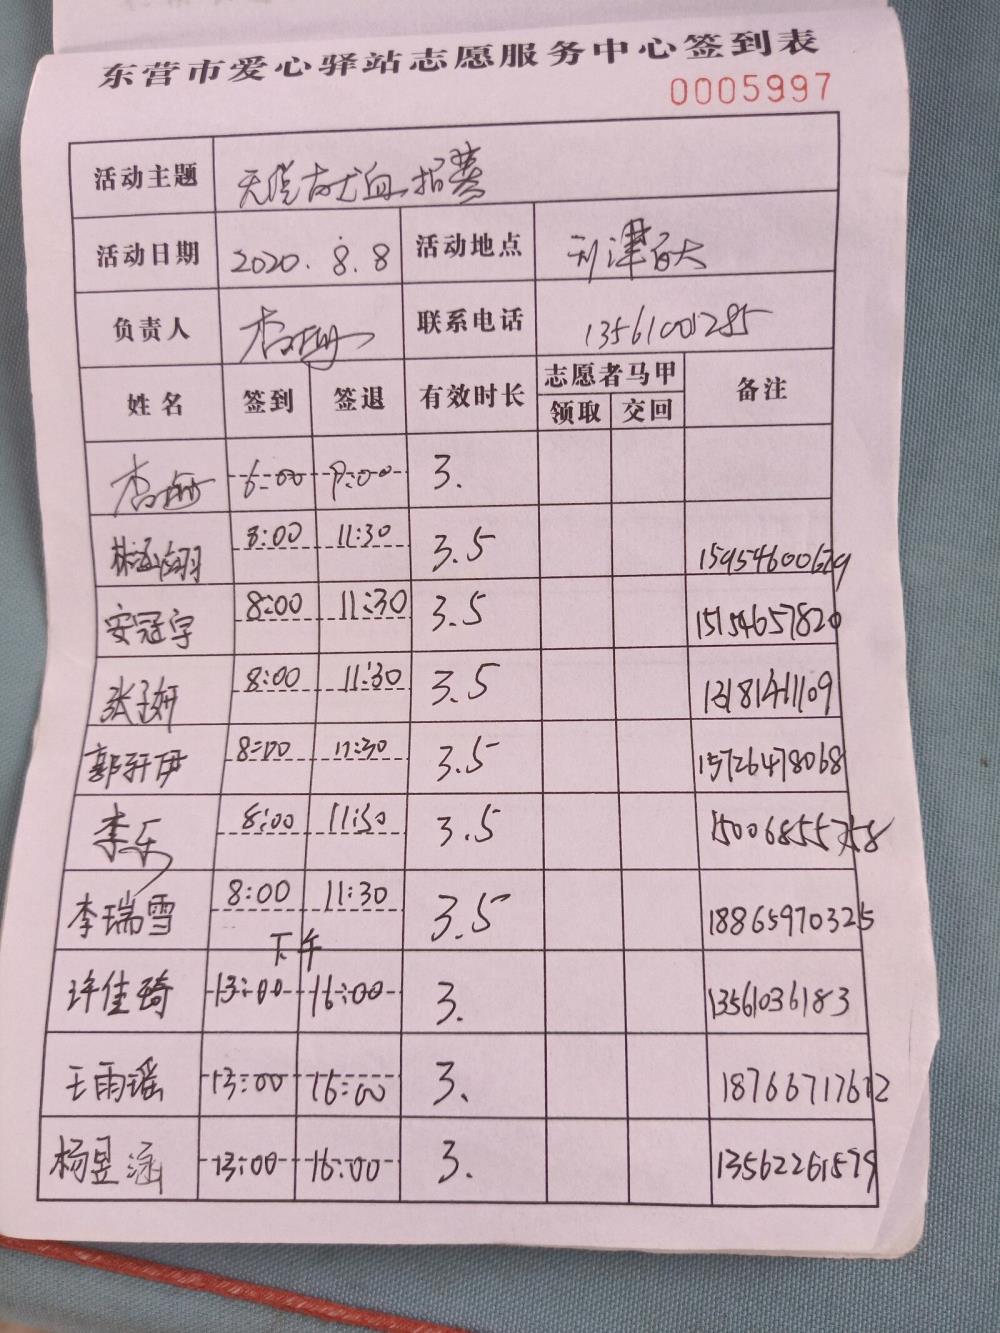 东营市爱心驿站志愿服务中心签到表
0005997
活动主题 无偿献血招募
活动日期 2020.8.8 活动地点 利津百大
负责人 联系电话 13561001285
姓名 签到 签退 有效时长 志愿者马甲 备注
领取 交回
6:00 9:00 3.
林 翊 8:00 11:30 3.5 15954600679
安冠宇 8:00 11:30 3.5 15154657820
张子妍 8:00 11:30 3.5 13181461109
郭轩伊 8:00 11:30 3.5 15726478068
李乐 8:00 11:30 3.5 15006855758
李瑞雪 8:00 11:30 3.5 18865970325
下午
许佳琦 13:00 16:00 3. 13561036183
王雨瑶 13:00 16:00 3. 18766717612
杨昱涵 13:00 16:00 3. 13562261579